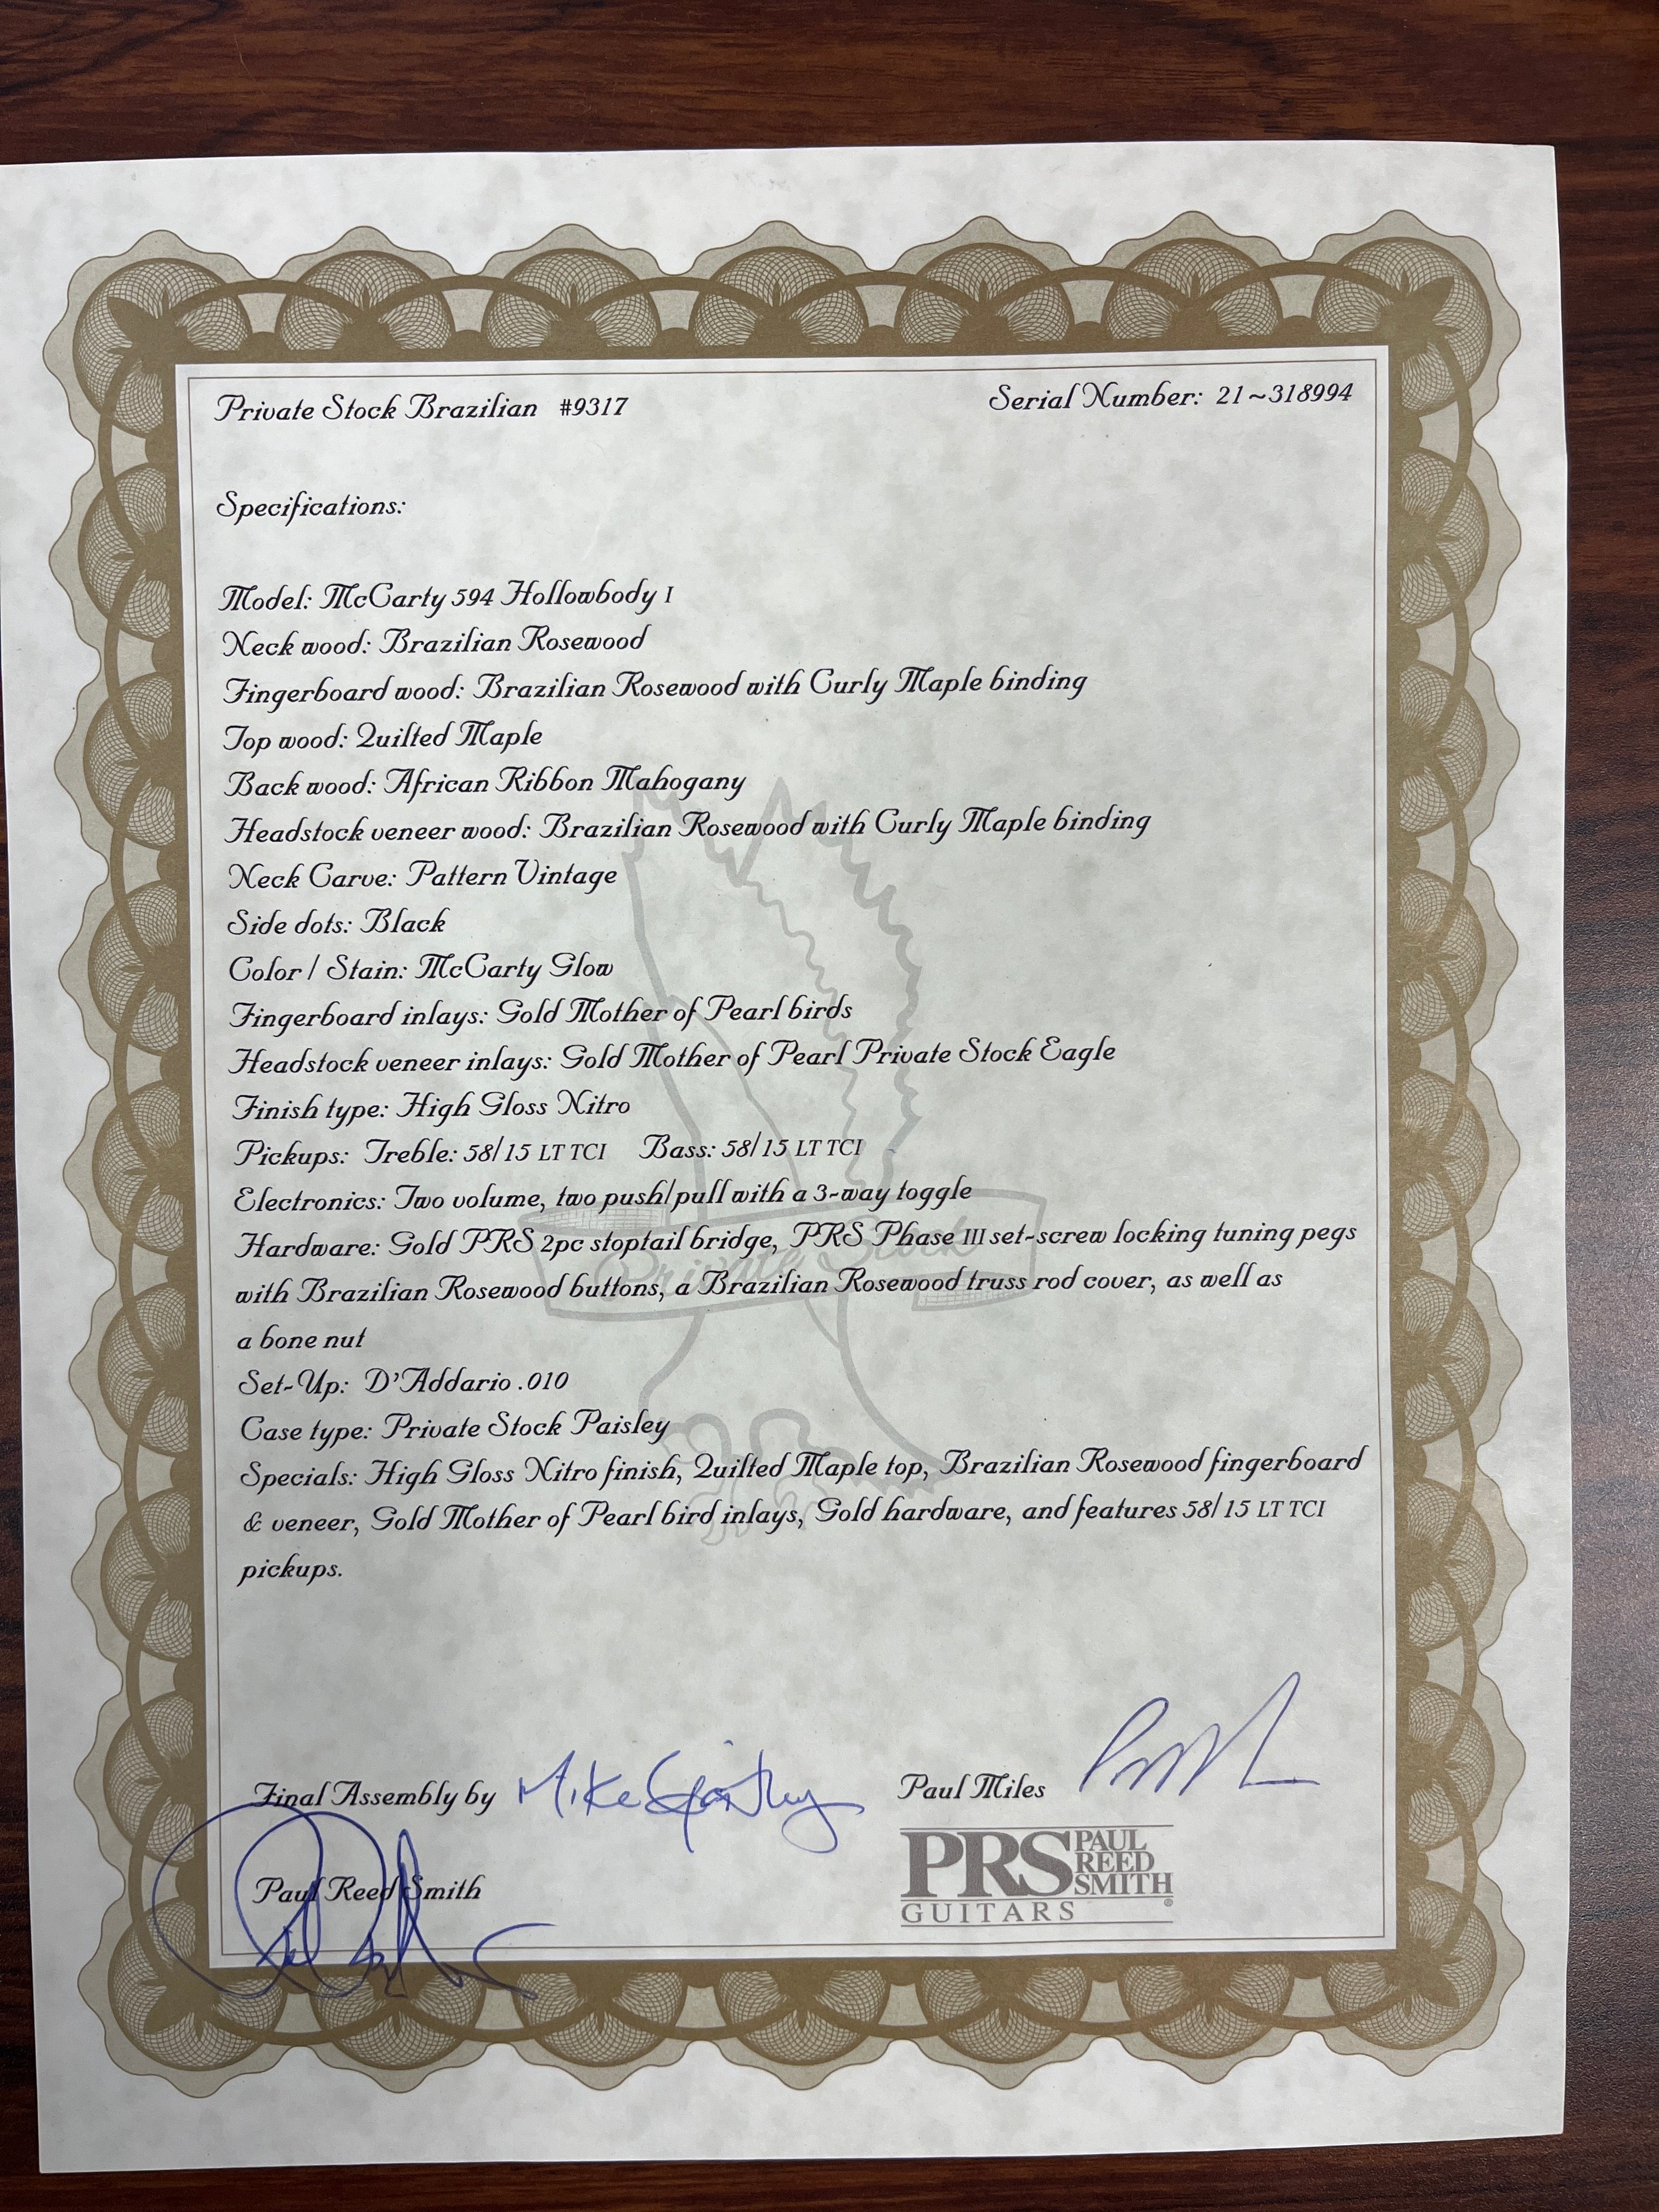 Private Stock Brazilian #9317
Serial Number: 21~318994
Specifications:
Model: McCarty 594 Hollowbody I
Neck wood: Brazilian Rosewood
Fingerboard wood: Brazilian Rosewood with Curly Maple binding
Top wood: Quilted Maple
Back wood: African Ribbon Mahogany
Headstock veneer wood: Brazilian Rosewood with Curly Maple binding
Neck Carve: Pattern Vintage
Side dots: Black
Color / Stain: McCarty Glow
Fingerboard inlays: Gold Mother of Pearl birds
Headstock veneer inlays: Gold Mother of Pearl Private Stock Eagle
Finish type: High Gloss Nitro
Pickups: Treble: 58/15 LT TCI Bass: 58/15 LT TCI
Electronics: Two volume, two push/pull with a 3-way toggle
Hardware: Gold PRS 2pc stoptail bridge, PRS Phase III set-screw locking tuning pegs
with Brazilian Rosewood buttons, a Brazilian Rosewood truss rod cover, as well as
a bone nut
Private Stock
Set-Up: D'Addario .010
Case type: Private Stock Paisley
Specials: High Gloss Nitro finish, Quilted Maple top, Brazilian Rosewood fingerboard
& veneer, Gold Mother of Pearl bird inlays, Gold hardware, and features 58/15 LT TCI
pickups.
Final Assembly by Mike
Paul Miles
Paul Reed Smith
PRS PAUL REED SMITH
GUITARS